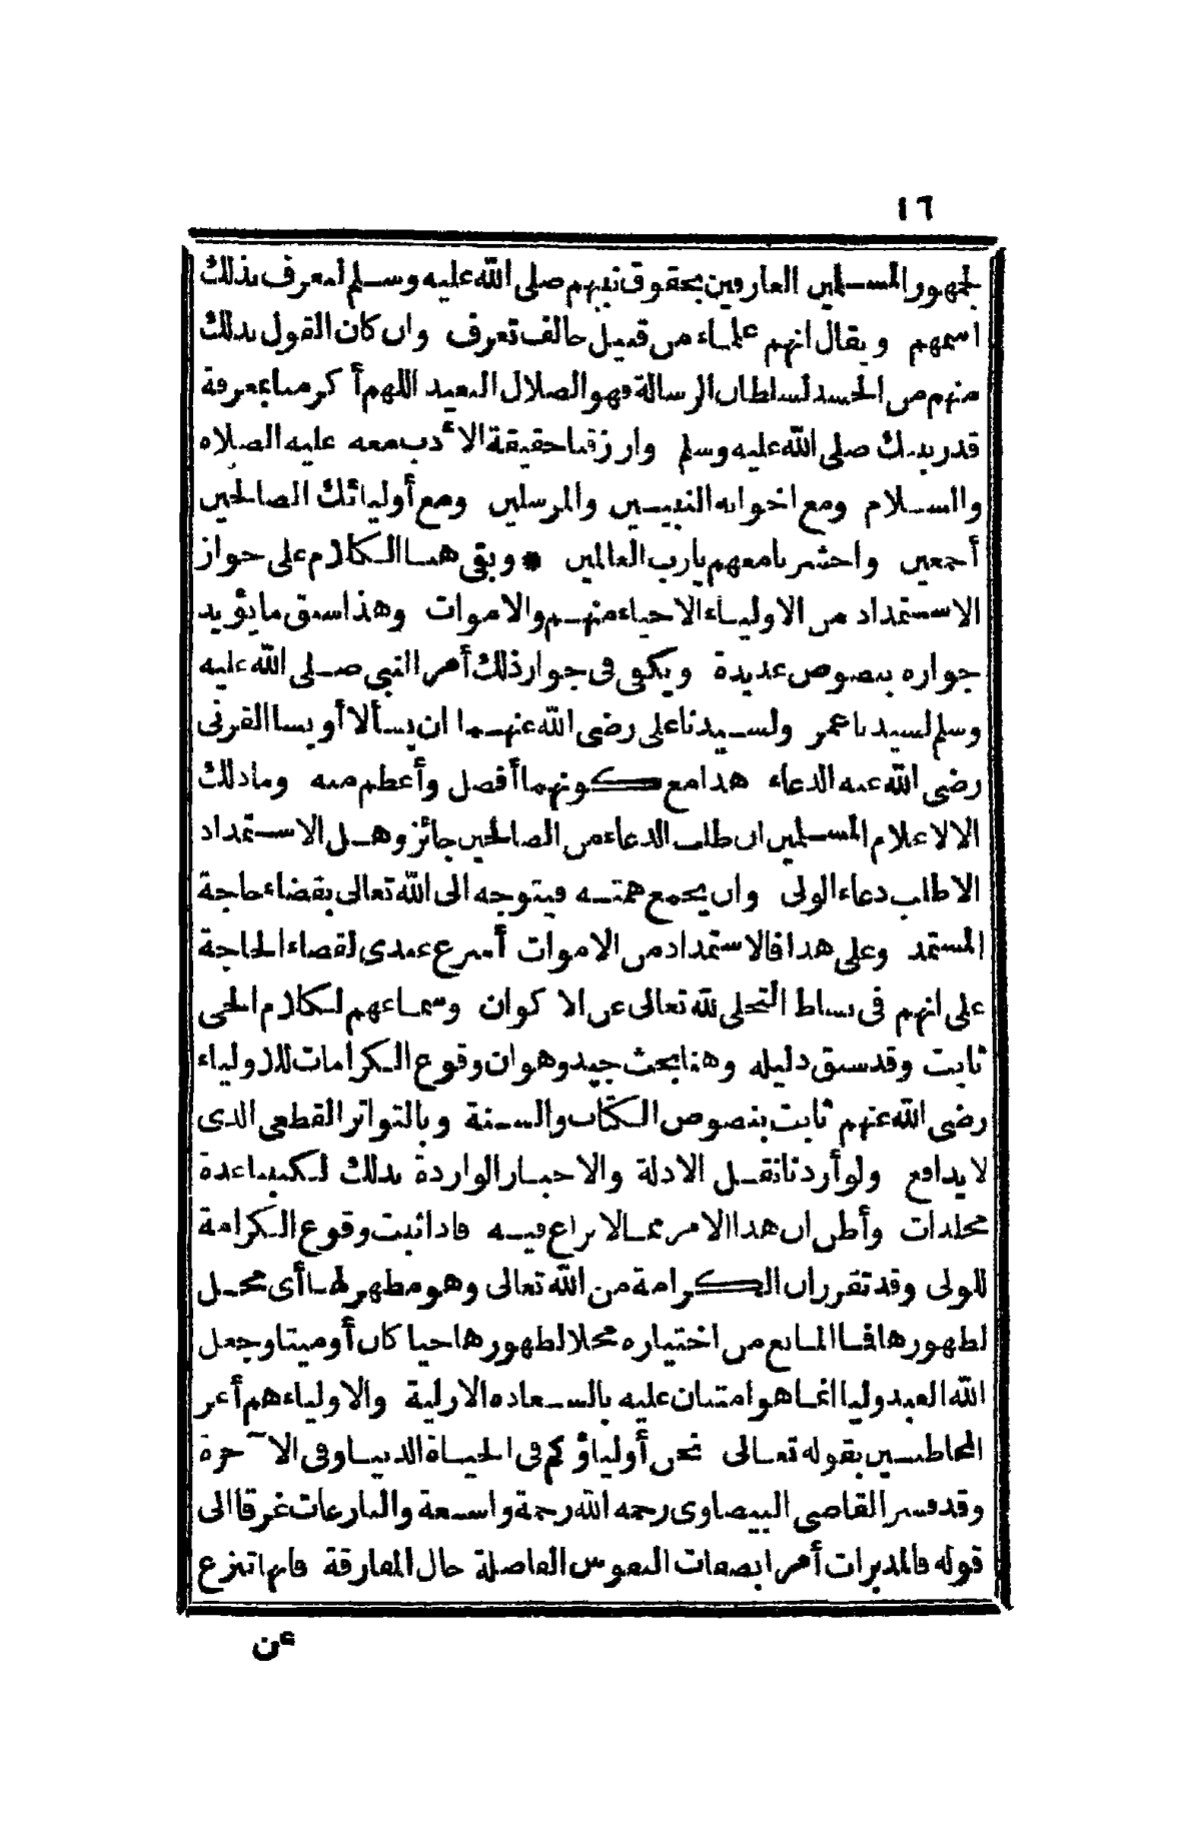 ١٦
لجمهور المسلمين العارفين بحقوق نبيهم صلى الله عليه وسلم ليعرف بذلك
اسمهم ويقال انهم علماء من قبيل خالف تعرف وان كان القول بذلك
منهم من الحسد لسلطان الرسالة فهو الضلال البعيد اللهم أكرمنا بمعرفة
قدر نبيك صلى الله عليه وسلم وارزقنا حقيقة الأدب معه عليه الصلاة
والسلام ومع اخوانه النبيين والمرسلين ومع أوليائك الصالحين
أجمعين واحشرنا معهم يا رب العالمين * وبقي هنا الكلام على جواز
الاستمداد من الاولياء الاحياء منهم والاموات وهذا سبق ما يؤيد
جوازه بنصوص عديدة ويكفي في جواز ذلك أمر النبي صلى الله عليه
وسلم لسيدنا عمر ولسيدنا على رضى الله عنهما ان يسألا أويسا القرنى
رضى الله عنه الدعاء هذا مع كونهما أفضل وأعظم منه وما ذلك
الا لاعلام المسلمين ان طلب الدعاء من الصالحين جائز وهل الاستمداد
الا طلب دعاء الولى وان يجمع همته فيتوجه الى الله تعالى بقضاء حاجة
المستمد وعلى هذا فالاستمداد من الاموات أسرع عندى لقضاء الحاجة
على انهم فى بساط التجلى لله تعالى عن الاكوان وسماعهم لكلام الحى
ثابت وقد سبق دليله وهنا بحث جيد وهو ان وقوع الكرامات للاولياء
رضى الله عنهم ثابت بنصوص الكتاب والسنة وبالتواتر القطعى الذى
لا يدافع ولو أردنا نقل الادلة والاخبار الواردة بذلك لكتبنا عدة
مجلدات وأظن ان هذا الامر مما لا نزاع فيه فاذا ثبت وقوع الكرامة
للولى وقد تقرر ان الكرامة من الله تعالى وهو مظهر لها أى محل
لظهورها فما المانع من اختياره محلا لظهورها حيا كان أو ميتا وجعل
الله العبد وليا انما هو امتنان عليه بالسعادة الازلية والاولياء هم أعز
المخاطبين بقوله تعالى نحن أولياؤكم فى الحياة الدنيا وفى الآخرة
وقد فسر القاضى البيضاوى رحمه الله رحمة واسعة والنازعات غرقا الى
قوله فالمدبرات أمرا بصفات النفوس الفاضلة حال المفارقة فانها تنزع
عن